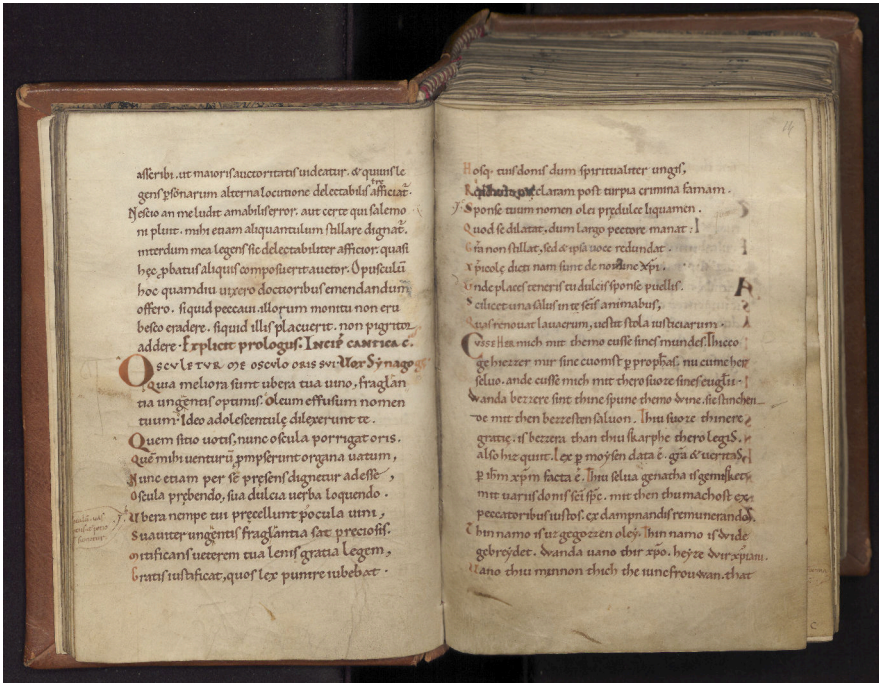 asscribi. ut maioris auctoritatis uideatur. & quiuis le
gens psonarum alterna locutione delectabilis afficiat.
Nescio an me ludit amabilis error. aut certe qui salemo
ni pluit. mihi etiam aliquantulum stillare dignat.
interdum mea legens sic delectabiliter afficior. quasi
hęc pbatus aliquis composuerit auctor. Opusculū
hoc quamdiu uixero doctioribus emendandum
offero. siquid peccaui illorum monitu non eru
besco eradere. siquid illis placuerit. non pigritor
addere. Explicit prologus. Incip cantica c.
OSCULETUR me osculo oris sui. Vox Synagogę
Quia meliora sunt ubera tua uino, fraglan
tia ungentis optimis. Oleum effusum nomen
tuum. Ideo adolescentulę dilexerunt te.
Quem sitio uotis, nunc oscula porrigat oris.
Quē mihi uenturū pmpserunt organa uatum,
Nunc etiam per sē pręsens dignetur adesse,
Oscula prębendo, sua dulcia uerba loquendo.
Ubera nempe tui pręcellunt pocula uini,
Suauiter ungentis fraglantia sat preciosis.
Mitificans ueterem tua lenis gratia legem,
Gratis iustificat, quos lex punire iubebat.
14
Hosq. tuis donis dum spiritualiter ungis,
claram post turpia crimina famam.
Sponse tuum nomen olei prędulce liquamen.
Quod se dilatat, dum largo pectore manat:
Gra non stillat, sed & ipsa uoce redundat.
Xpicolę dicti nam sunt de nomine xpi.
Unde places teneris tu dulcis sponse puellis.
Scilicet una salus in te seis animabus,
Quas renouat lauacrum, uestit stola iusticiarum.
Cusse her mich mit themo cusse sines mundes. Thicco
ge hiezzer mir sine cuomst p prophas. nu cume her
seluo. ande cusse mich mit thero suoze sines euglii.
Wanda bezzere sint thine spune themo wine. sie stinchen
de mit then bezzesten saluon. Thiu suoze thinere
gratię. is bezzera than thiu skarphe thero legis.
also hiz quit. Lex p moysen data ē. gra & ueritas
p ihm xpm facta ē. Thiu selua genatha is gemisket
mit uariis donis sci sps. mit then thu machost ex
peccatoribus iustos. ex dampnandis remunerandos.
Thin namo is uz gegozzen oley. Thin namo is wide
gebreydet. wanda uano thir xpo. heyze wir xpiani.
Uano thiu minnon thich the iuncfrouwan. that